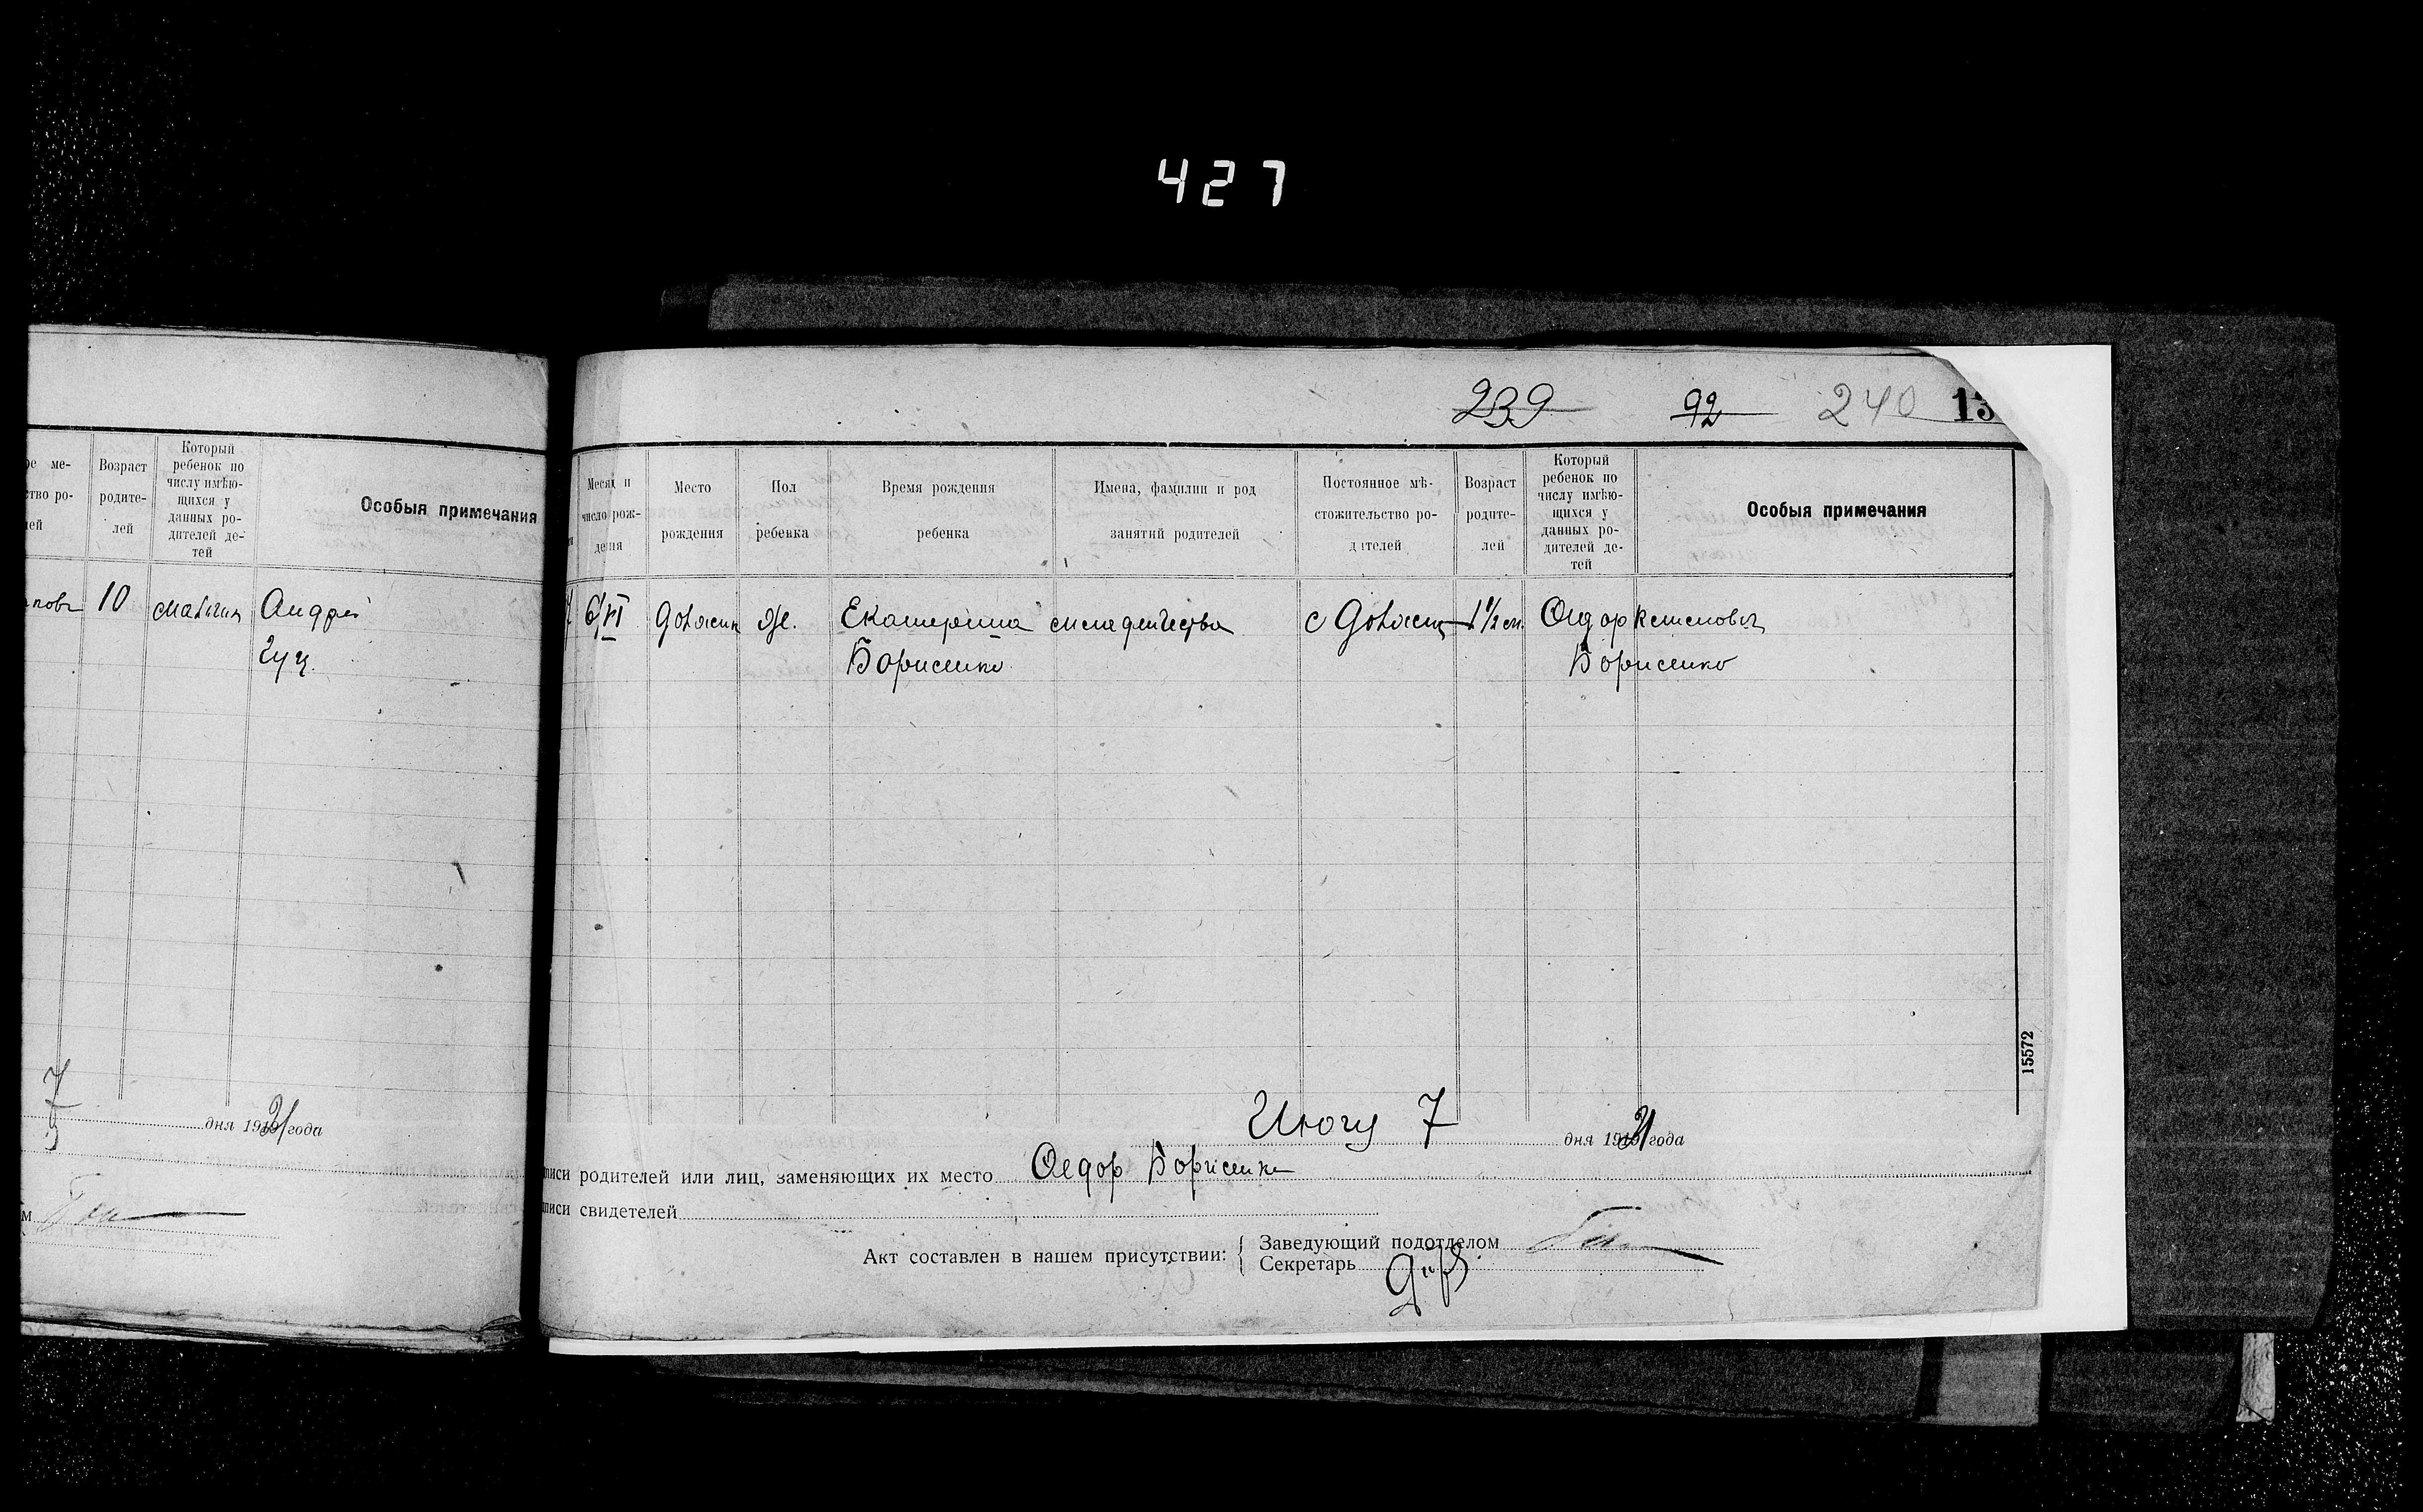 427
239 92 240 13
ре ме-
ство ро-
лей
Возраст
родите-
лей
Который
ребенок по
числу имѣю-
щихся у
данных ро-
дителей де-
тей
Особыя примечания
10
Андрей
7
дня 1921 года
Месяц и
число рож-
дения
Место
рождения
Пол
ребенка
Время рождения
ребенка
Имена, фамилии и род
занятий родителей
Постоянное мѣ-
стожительство ро-
дителей
Возраст
родите-
лей
Который
ребенок по
числу имѣю-
щихся у
данных ро-
дителей де-
тей
Особыя примечания
6/VI Же. Екатерина младенчества с 1 1/2 Федор
Борисенко Борисенко
15572
7 дня 1921 года
писи родителей или лиц, заменяющих их место Федор Борисенко
писи свидетелей
Акт составлен в нашем присутствии:
Заведующий подотделом
Секретарь